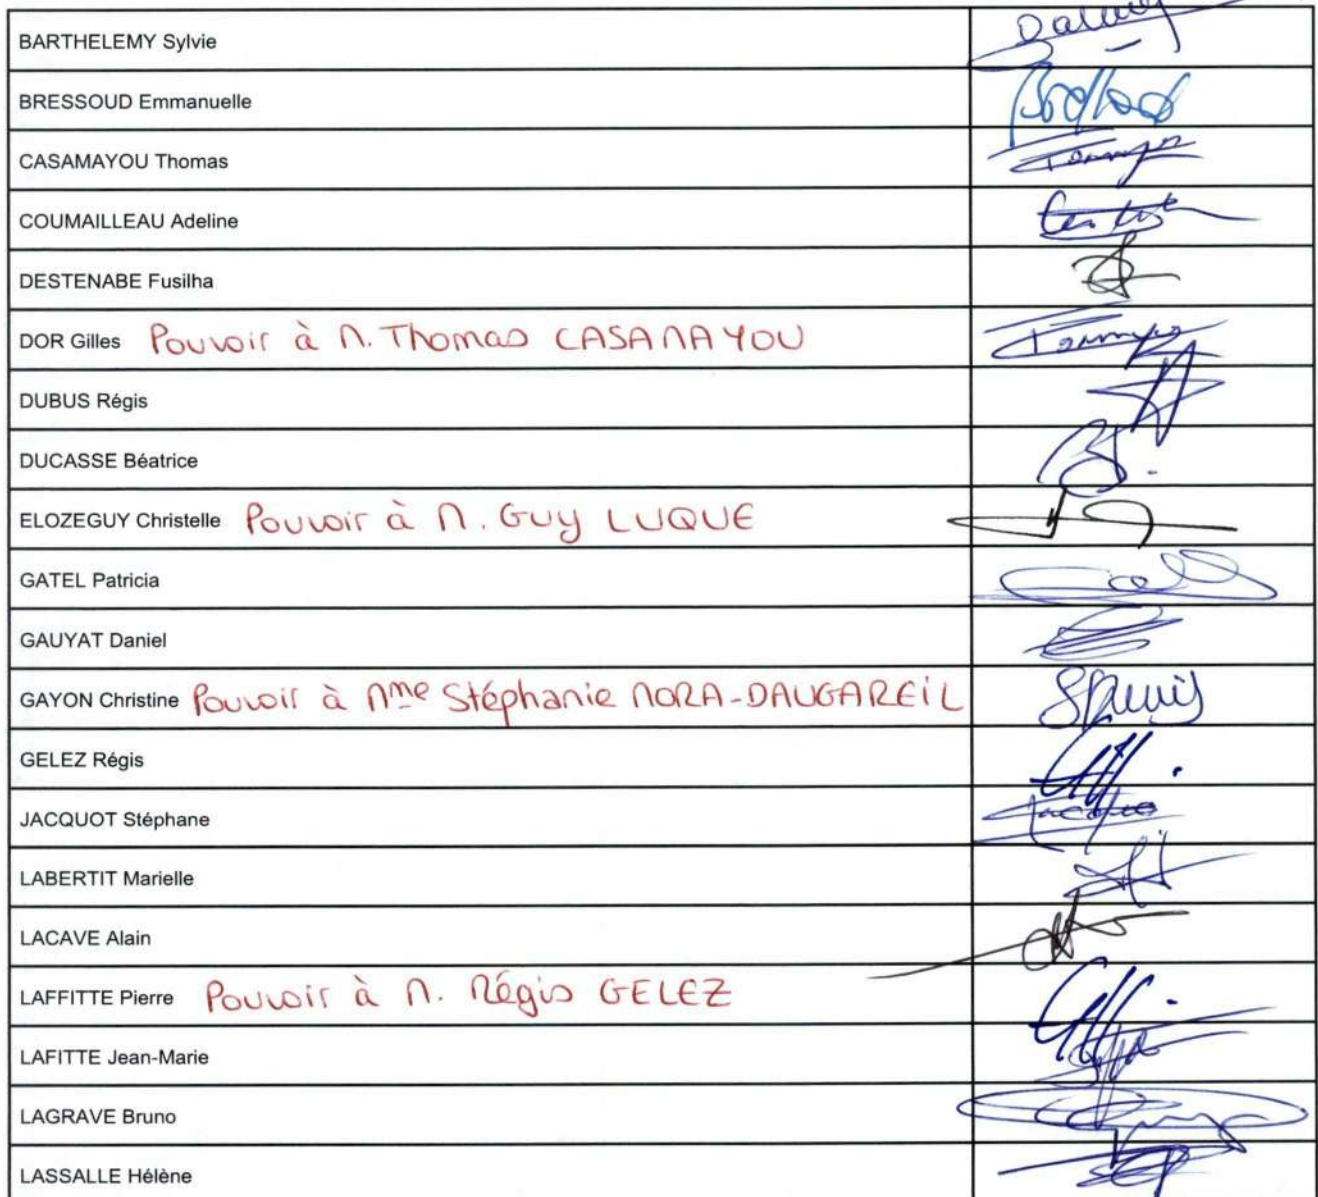 BARTHELEMY Sylvie
BRESSOUD Emmanuelle
CASAMAYOU Thomas
COUMAILLEAU Adeline
DESTENABE Fusilha
DOR Gilles Pouvoir à M. Thomas CASAMAYOU
DUBUS Régis
DUCASSE Béatrice
ELOZEGUY Christelle Pouvoir à M. Guy LUQUE
GATEL Patricia
GAUYAT Daniel
GAYON Christine Pouvoir à Mme Stéphanie MORA-DAUGAREIL
GELEZ Régis
JACQUOT Stéphane
LABERTIT Marielle
LACAVE Alain
LAFFITTE Pierre Pouvoir à M. Régis GELEZ
LAFITTE Jean-Marie
LAGRAVE Bruno
LASSALLE Hélène